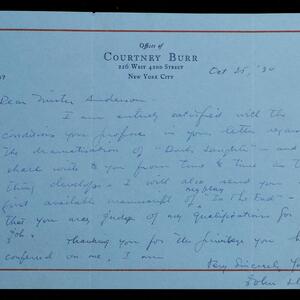 Office of
COURTNEY BURR
226 WEST 42ND STREET
NEW YORK CITY
Oct 25, '34
Dear Mister Anderson:
I am entirely satisfied with the
conditions you propose in your letter regar
the dramatization of "Dark Laughter" – and
share write to you from time to time as the
thing develops. I will also send you
my play
first available manuscript of "In The End" –
that you may judge of my qualifications for
job.
Thanking you for the privilege you h
conferred on me, I am
Very Sincerely Yo
John